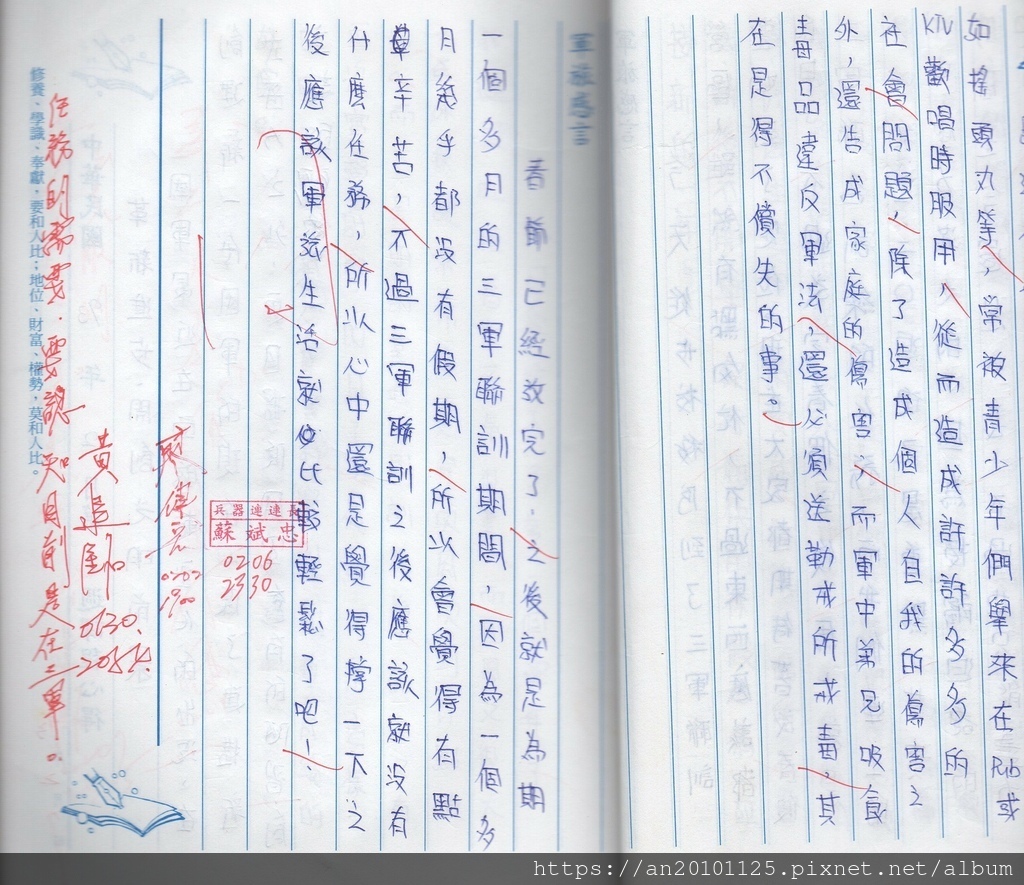 如搖頭丸等，常被青少年們舉來在Pub或
KTV歡唱時服用，從而造成許許多多的
社會問題，除了造成個人自我的傷害之
外，還告成家庭的傷害；而軍中弟兄吸食
毒品違反軍法，還必須送勒戒所戒毒，其
在是得不償失的事。
軍旅感言
春節已經放完了，之後就是為期
一個多月的三軍聯訓期間，因為一個多
月幾乎都沒有假期，所以會覺得有點
辛苦，不過三軍聯訓之後應該就沒有
什麼任務，所以心中還是覺得撐一下之
後應該軍旅生活就會比較輕鬆了吧！
兵器連連長
蘇斌忠
0206
2330
0202
1900
0130
任務的需要，要認知目前是在三軍。
修養、學識、奉獻，要和人比；地位、財富、權勢，莫和人比。
https://an20101125.pixnet.net/album